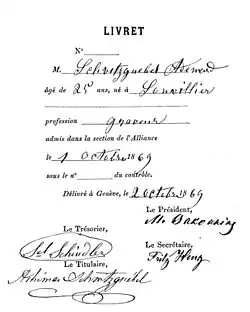 LIVRET
N°
M. Schwitzguébel Adhémar
âgé de 25 ans, né à Sonvillier
profession graveur
admis dans la section de l'Alliance
le 1 Octobre 1869
sous le n° du contrôle.
Délivré à Genève, le 2 Octobre 1869
Le Président,
M. Bakounine
Le Trésorier, Le Secrétaire,
Schindler Fritz Heng
Le Titulaire,
Adhémar Schwitzguébel